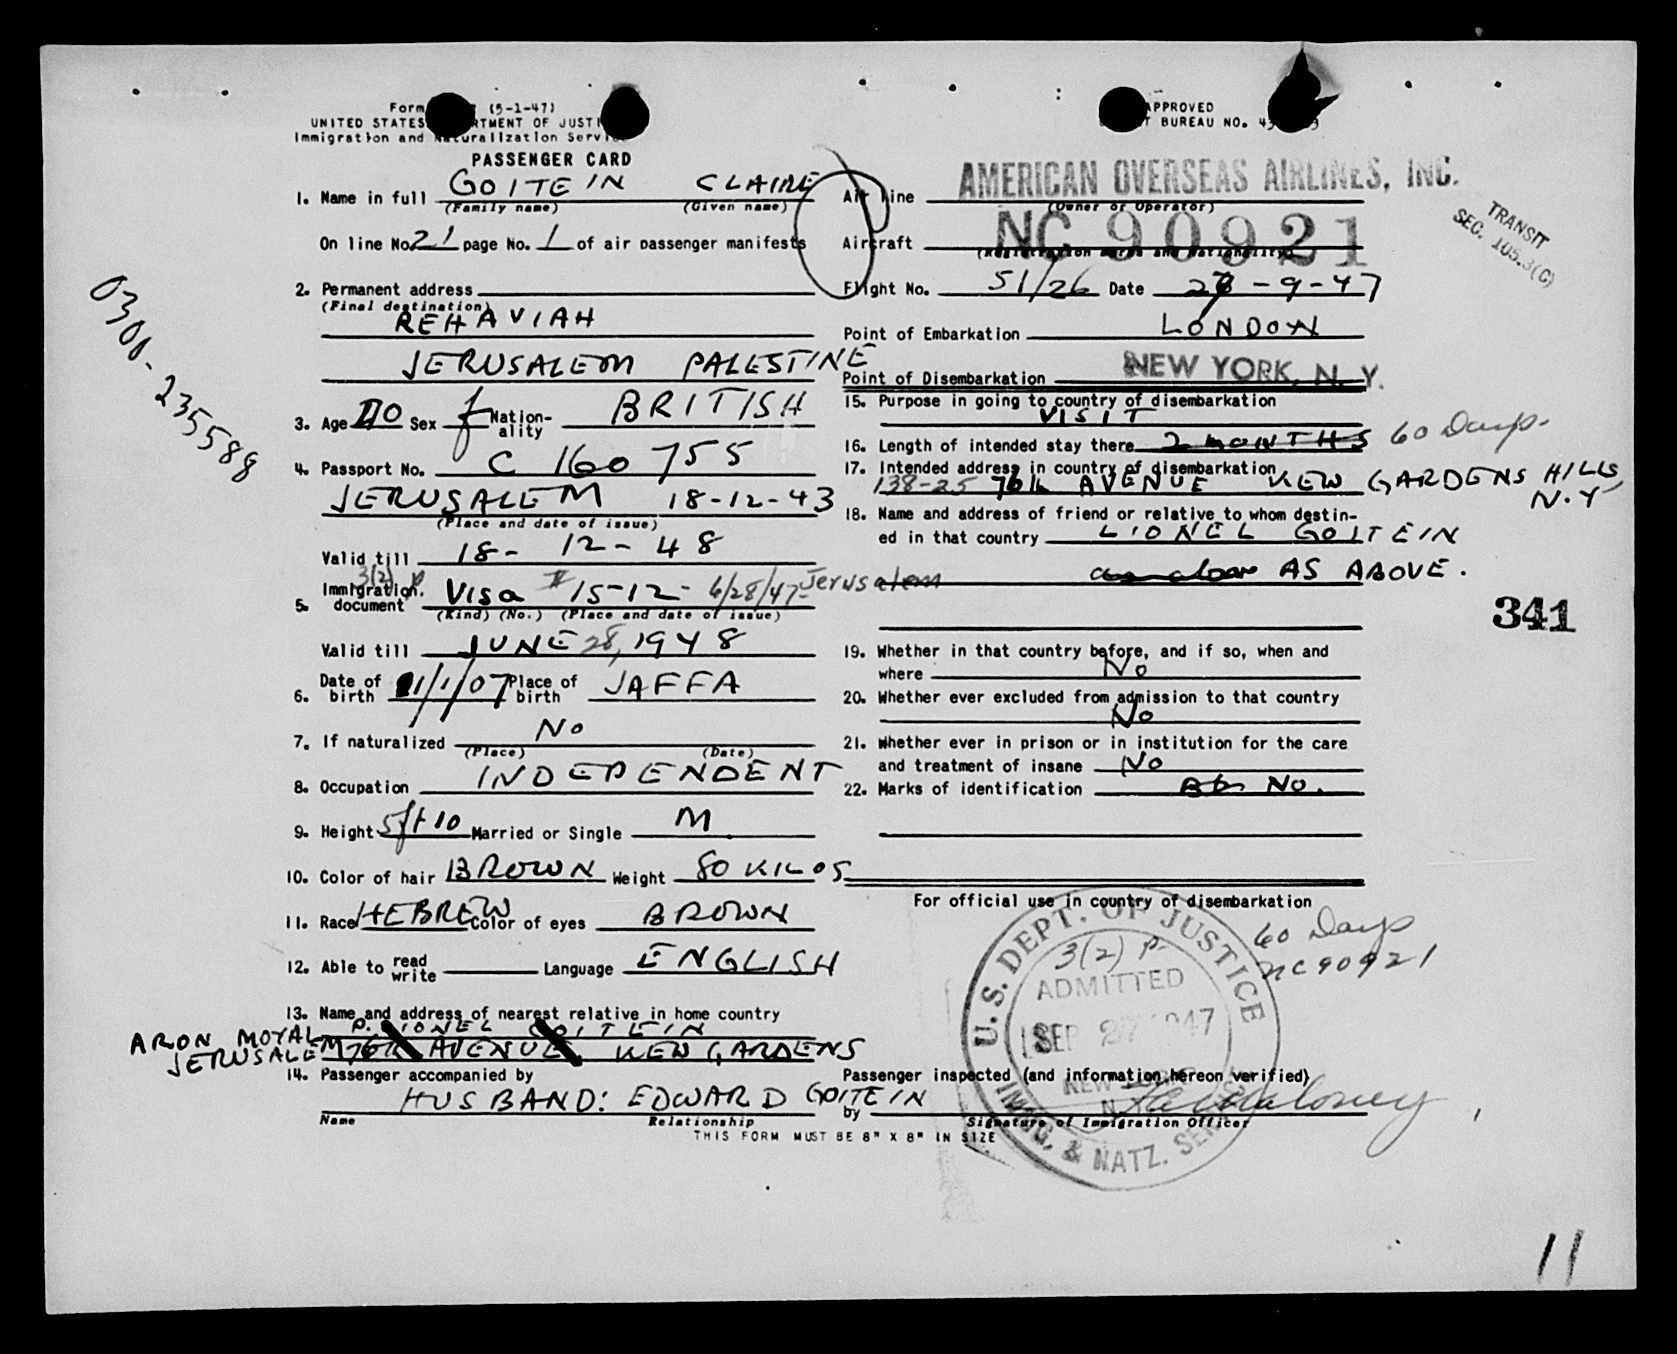 Form (5-1-47)
UNITED STATES DEPARTMENT OF JUSTICE
Immigration and Naturalization Service
PASSENGER CARD
APPROVED
BUREAU NO.
1. Name in full GOITEIN CLAIRE
(Family name) (Given name)
On line No. 21 page No. 1 of air passenger manifests
2. Permanent address
(Final destination)
REHAVIAH
JERUSALEM PALESTINE
3. Age 40 Sex f Nation-ality BRITISH
4. Passport No. C 160755
JERUSALEM 18-12-43
(Place and date of issue)
Valid till 18-12-48
3(2) p
5. Immigration document Visa # 15-12- 6/28/47 Jerusalem
(Kind) (No.) (Place and date of issue)
Valid till JUNE 28, 1948
6. Date of birth 1/1/07 Place of birth JAFFA
7. If naturalized No
(Place) (Date)
8. Occupation INDEPENDENT
9. Height 5ft 10 Married or Single M
10. Color of hair BROWN Weight 80 KILOS
11. Race HEBREW Color of eyes BROWN
12. Able to read write Language ENGLISH
13. Name and address of nearest relative in home country
P. LIONEL GOITEIN
ARON MOYAL
JERUSALEM
76th AVENUE KEW GARDENS
14. Passenger accompanied by
HUSBAND: EDWARD GOITEIN
Name Relationship
THIS FORM MUST BE 8" X 8" IN SIZE
Air line AMERICAN OVERSEAS AIRLINES, INC.
(Owner or Operator)
Aircraft NC 90921
(Registration marks and nationality)
Flight No. 51/26 Date 27-9-47
Point of Embarkation LONDON
Point of Disembarkation NEW YORK, N. Y.
15. Purpose in going to country of disembarkation
VISIT
16. Length of intended stay there 2 MONTHS 60 Days.
17. Intended address in country of disembarkation
138-25 76th AVENUE KEW GARDENS HILLS,
N.Y
18. Name and address of friend or relative to whom destin-
ed in that country LIONEL GOITEIN
as above AS ABOVE.
19. Whether in that country before, and if so, when and
where No
20. Whether ever excluded from admission to that country
No
21. Whether ever in prison or in institution for the care
and treatment of insane No
22. Marks of identification No.
For official use in country of disembarkation
60 Days
NC90921
U.S. DEPT. OF JUSTICE
3(2) P.
ADMITTED
SEP 27 1947
NEW YORK
N.Y.
IMMIG. & NATZ. SERVICE
Passenger inspected (and information hereon verified)
by
Signature of Immigration Officer
TRANSIT
SEC. 105.3(C)
341
0300-235589
11